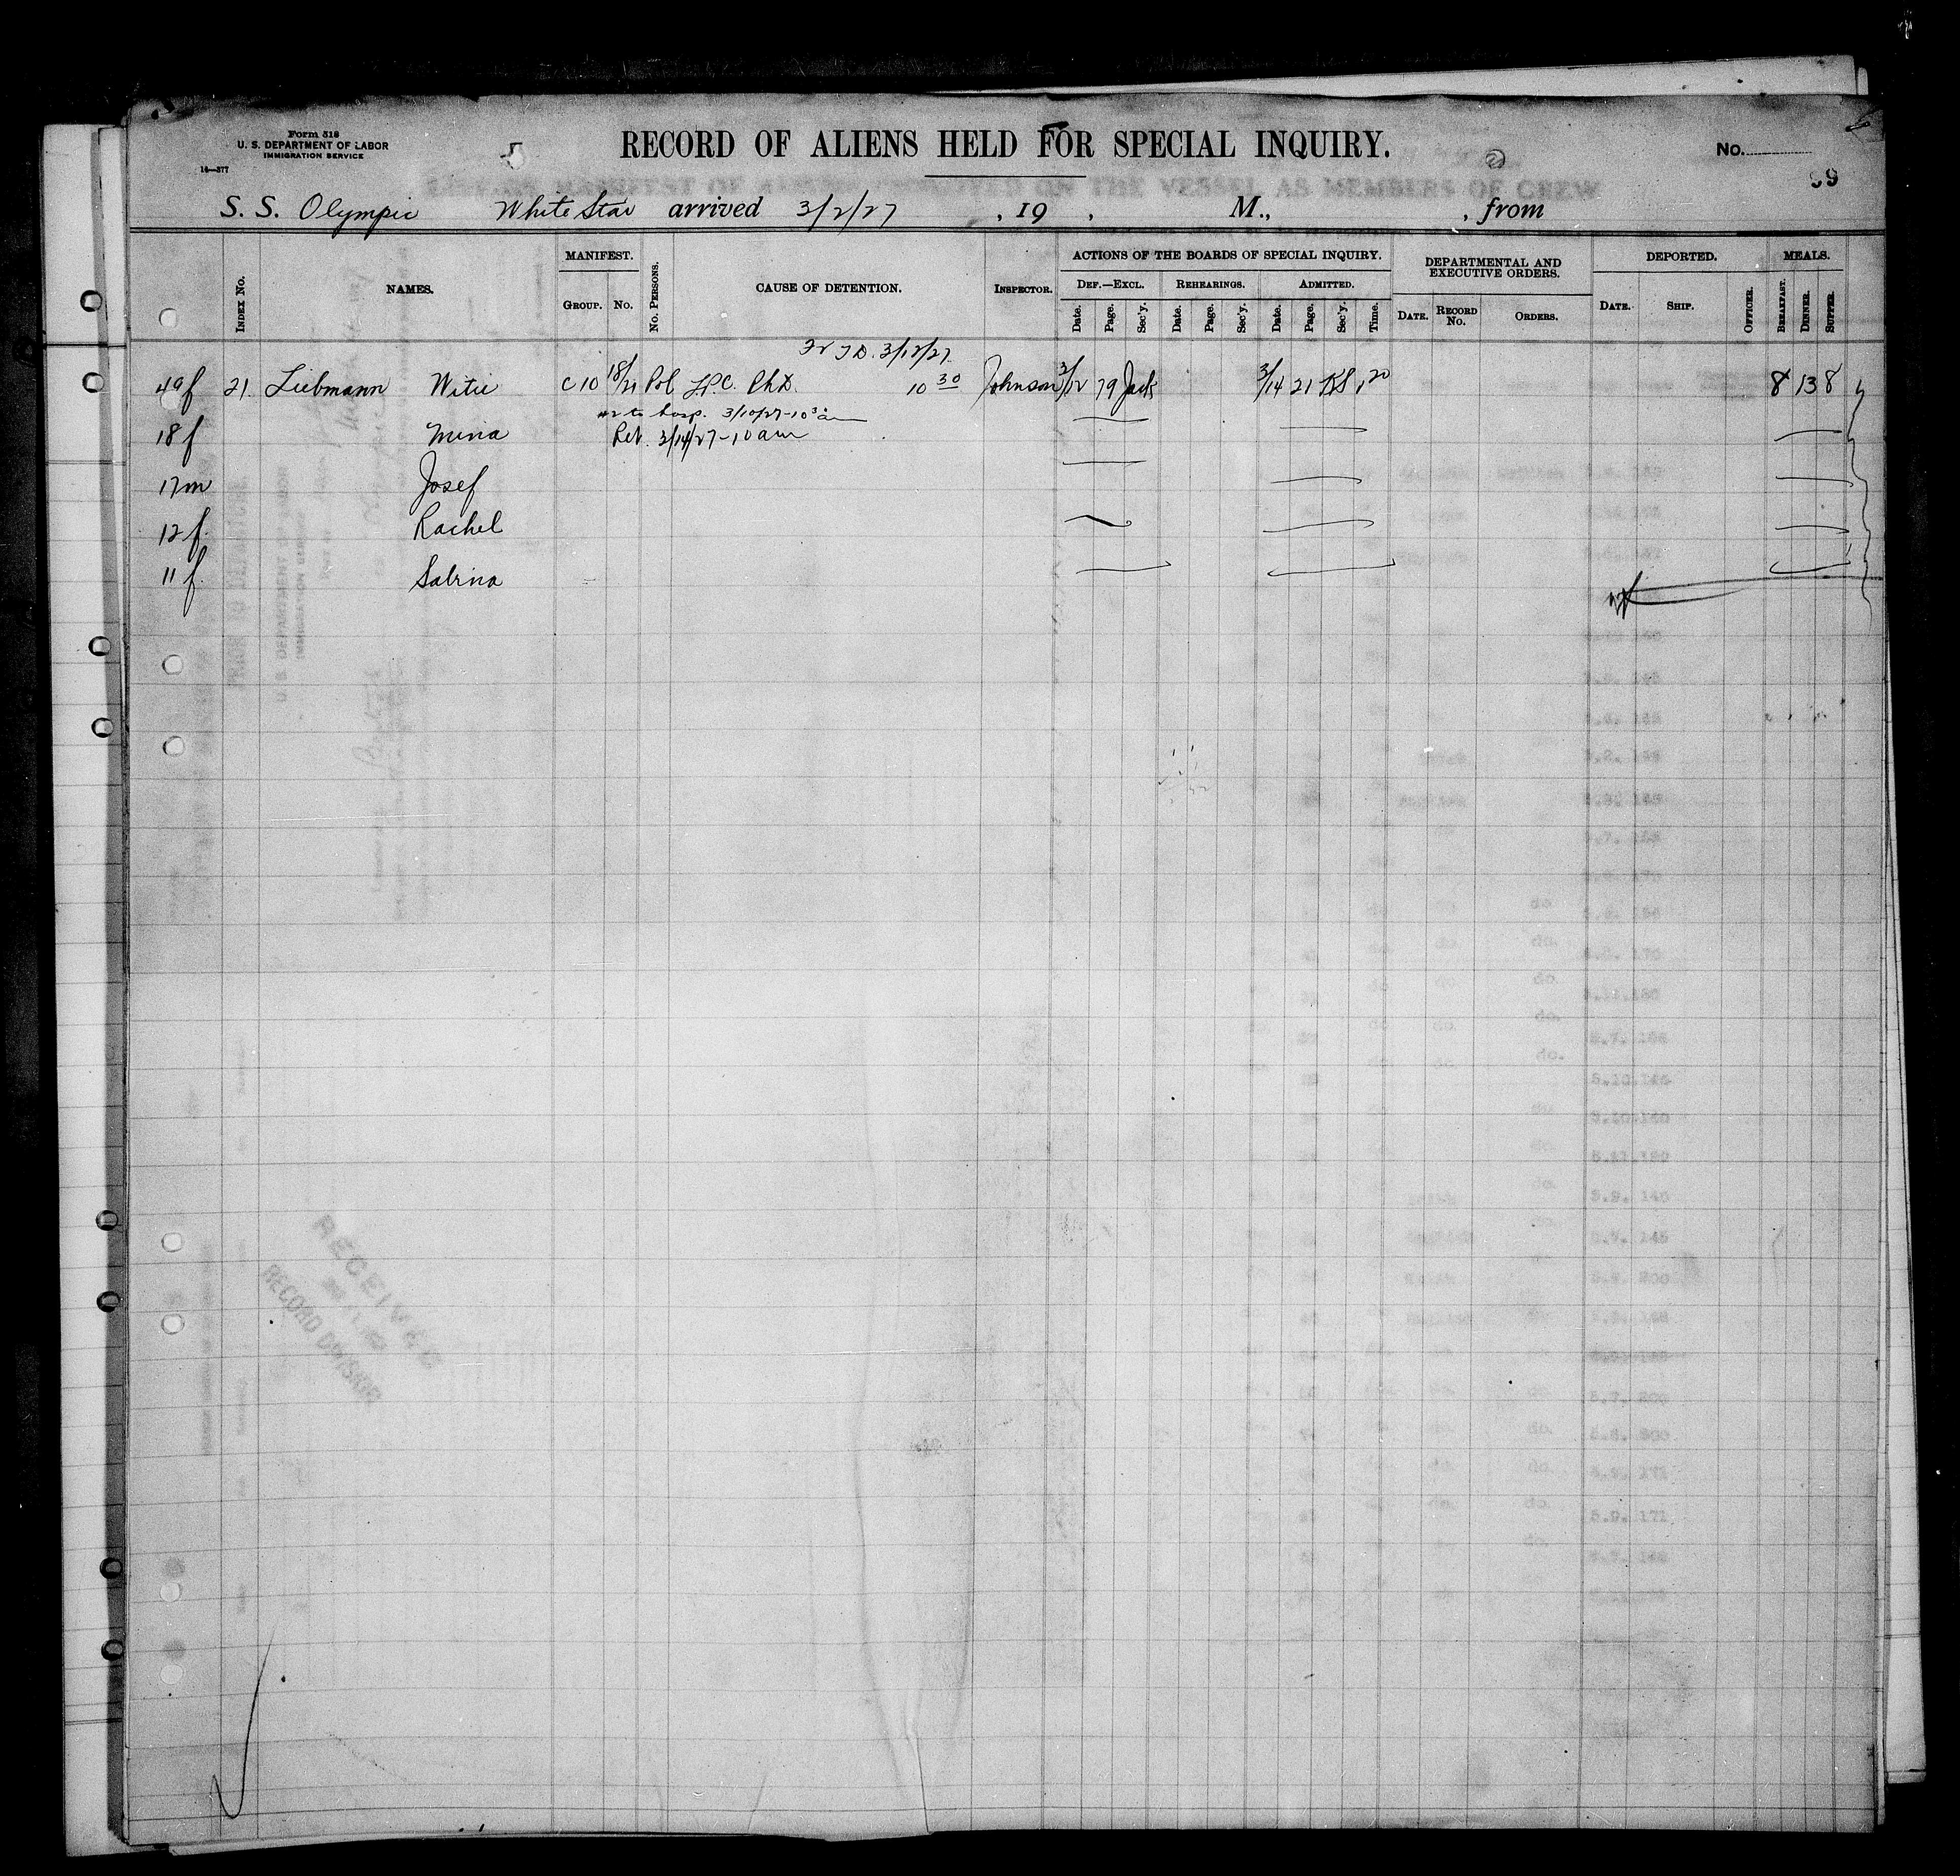 Form 518
U. S. DEPARTMENT OF LABOR
IMMIGRATION SERVICE
14—377
RECORD OF ALIENS HELD FOR SPECIAL INQUIRY.
No.
99
S. S. Olympic White Star arrived 3/2/27 , 19 , M., , from
Index No.
NAMES.
MANIFEST.
Group. No.
No. Persons.
CAUSE OF DETENTION.
Inspector.
ACTIONS OF THE BOARDS OF SPECIAL INQUIRY.
Def.—Excl. Rehearings. Admitted.
Date. Page. Sec'y. Date. Page. Sec'y. Date. Page. Sec'y. Time.
DEPARTMENTAL AND EXECUTIVE ORDERS.
Date. Record No. Orders.
DEPORTED.
Date. Ship. Officer.
MEALS.
Breakfast. Dinner. Supper.
Fr T.D. 3/12/27
49 f 21. Liebmann Witie C 10 18/21 Pol L.P.C. Ph.D. 10 30 Johnson 3/12 79 Jack 3/14 21 1 20 8 13 8
#2 to hosp. 3/10/27-10 30 am
18 f Mina Ret. 3/14/27-10 am
17 m Josef
12 f. Rachel
11 f. Sabina
RECEIVED
RECORD DIVISION